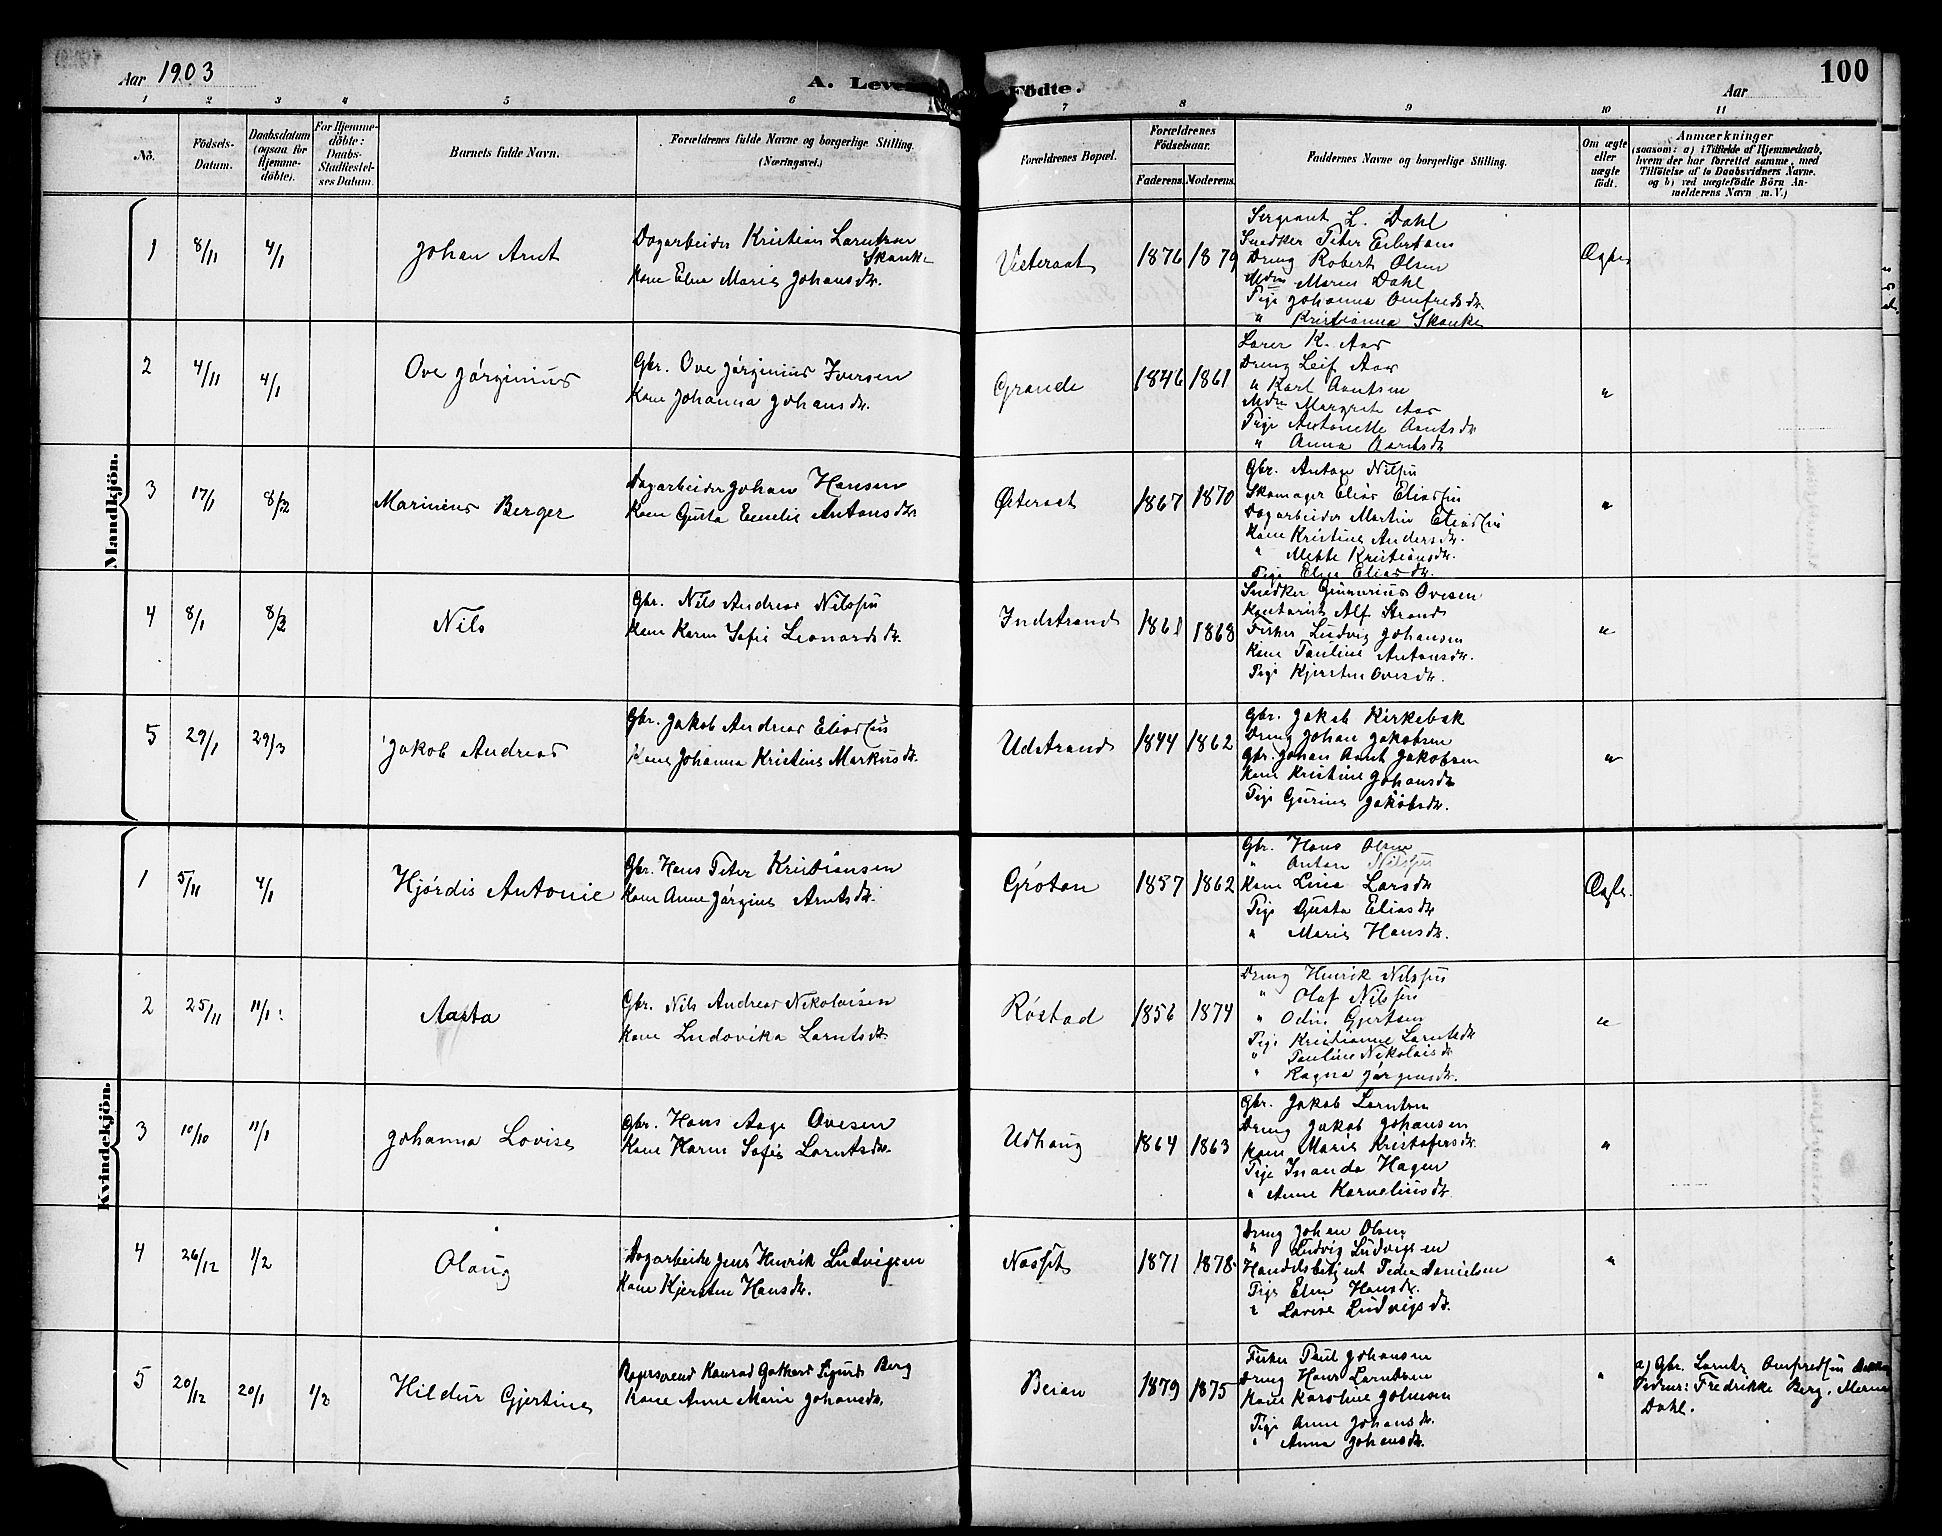 Aar 1903
A. Leve
Födte.
Aar
100
1 2 3 4 5 6 7 8 9 10 11
No.
Födsels-
Datum.
Daabsdatum
(ogsaa for
Hjemme-
döbte).
For Hjemme-
döbte:
Daabs-
Stadfæstel-
ses Datum.
Barnets fulde Navn.
Forældrenes fulde Navne og borgerlige Stilling.
(Næringsvei.)
Forældrenes Bopæl.
Forældrenes
Födselsaar.
Faderens. Moderens.
Faddernes Navne og borgerlige Stilling.
Om ægte
eller
uægte
født.
Anmærkninger
(saasom: a) i Tilfælde af Hjemmedaab,
hvem der har forrettet samme, med
Tilföielse af to Daabsvidners Navne.
og b) ved uægtefödte Börn An-
melderens Navn m.V.)
Mandkjön.
1 8/11 4/1 Johan Arnt
Dagarbeider Kristian Larntsen
Skanke
Kone Elen Marie Johansdtr.
Vesteraat 1876 1879
Sergeant L. Dahl
Snedker Peter
Dreng Robert Olsen
Maren Dahl
Pige Johanna Amfredsdtr.
" Kristianna Skanke
Ægte
2 4/11 4/1 Ove Jörginius
Gbr. Ove Jörginius Iversen
Kone Johanna Johansdtr.
Grande 1846 1861
Lærer K. Aas
Dreng Leif Aas
" Karl Arntsen
Margrete Aas
Pige Antonette Arntsdtr
" Anna Arntsdtr
"
3 17/1 8/3 Marinius Berger
Dagarbeider Johan Hansen
Kone Gusta Emelie Antonsdtr.
Østeraat 1867 1870
Gbr. Anton Nilssen
Skomager Elias Eliassen
Dagarbeider Martin Eliassen
Kone Kristine Andersdtr.
" Mette Kristiansdtr.
Pige Elen Eliasdtr.
"
4 8/1 8/3 Nils
Gbr. Nils Andreas Nilssen
Kone Karen Sofie Leonardsdtr.
Indstrand 1868
Snedker Gunnerius Ovesen
Kontorist Alf Strand
Fisker Ludvig Johansen
Kone Pauline Antonsdtr.
Pige Kjersten Ovesdtr.
"
5 29/1 29/3 Jakob Andreas
Gbr. Jakob Andreas Eliassen
Kone Johanna Kristine Markusdtr.
Udstrand 1844 1862
Gbr. Jakob Kirkebak
Dreng Johan Jakobsen
Gbr. Johan Arnt Jakobsen
Kone Kristine Johansdtr
Pige Gurine Jakobsdtr.
"
Kvindekjön.
1 5/11 4/1 Hjördis Antonie
Gbr. Hans Peter Kristiansen
Kone Anne Jörgine Arntsdtr.
Grötan 1857 1862
Gbr. Hans Olsen
" Anton Nilssen
Kone Lina Larsdtr
Pige Gusta Eliasdtr
" Marie Hansdtr.
Ægte.
2 25/11 11/1 Aasta
Gbr. Nils Andreas Nikolaisen
Kone Ludovika Larntsdtr.
Röstad 1856 1874
Dreng Henrik Nilssen
" Olaf Nilssen
" Odin Gjertsen
Pige Kristianne Larntsdtr
" Pauline Nikolaisdtr
" Ragna Jörgensdtr.
"
3 10/10 11/1 Johanna Lovise
Gbr. Hans Aage Ovesen
Kone Karen Sofie Larntsdtr.
Udhaug 1864 1863
Gbr. Jakob Larntsen
Dreng Jakob Johansen
Kone Marie Kristofersdtr.
Pige Inanda Hagen
" Anne Korneliusdtr.
"
4 26/12 1/2 Olaug
Dagarbeider Jens Henrik Ludvigsen
Kone Kjersten Hansdtr.
1871 1878
Dreng Johan Olsen
" Ludvig Ludvigsen
Handelsbetjent Peder Danielsen
Pige Elen Hansdtr.
" Lovise Ludvigsdtr.
"
5 20/12 20/1 1/2 Hildur Gjertine
Bagersvend Konrad Gothard Sigurd Berg
Kone Anne Marie Johansdtr.
Beian 1879 1875
Fisker Paul Johansen
Dreng Hans Larntsen
Kone Karoline Johnsen
Pige Anne Johansdtr.
" Anna Johansdtr.
"
a) Gbr. Larntz Amfredsen
Fredrikke Berg,
Dahl.